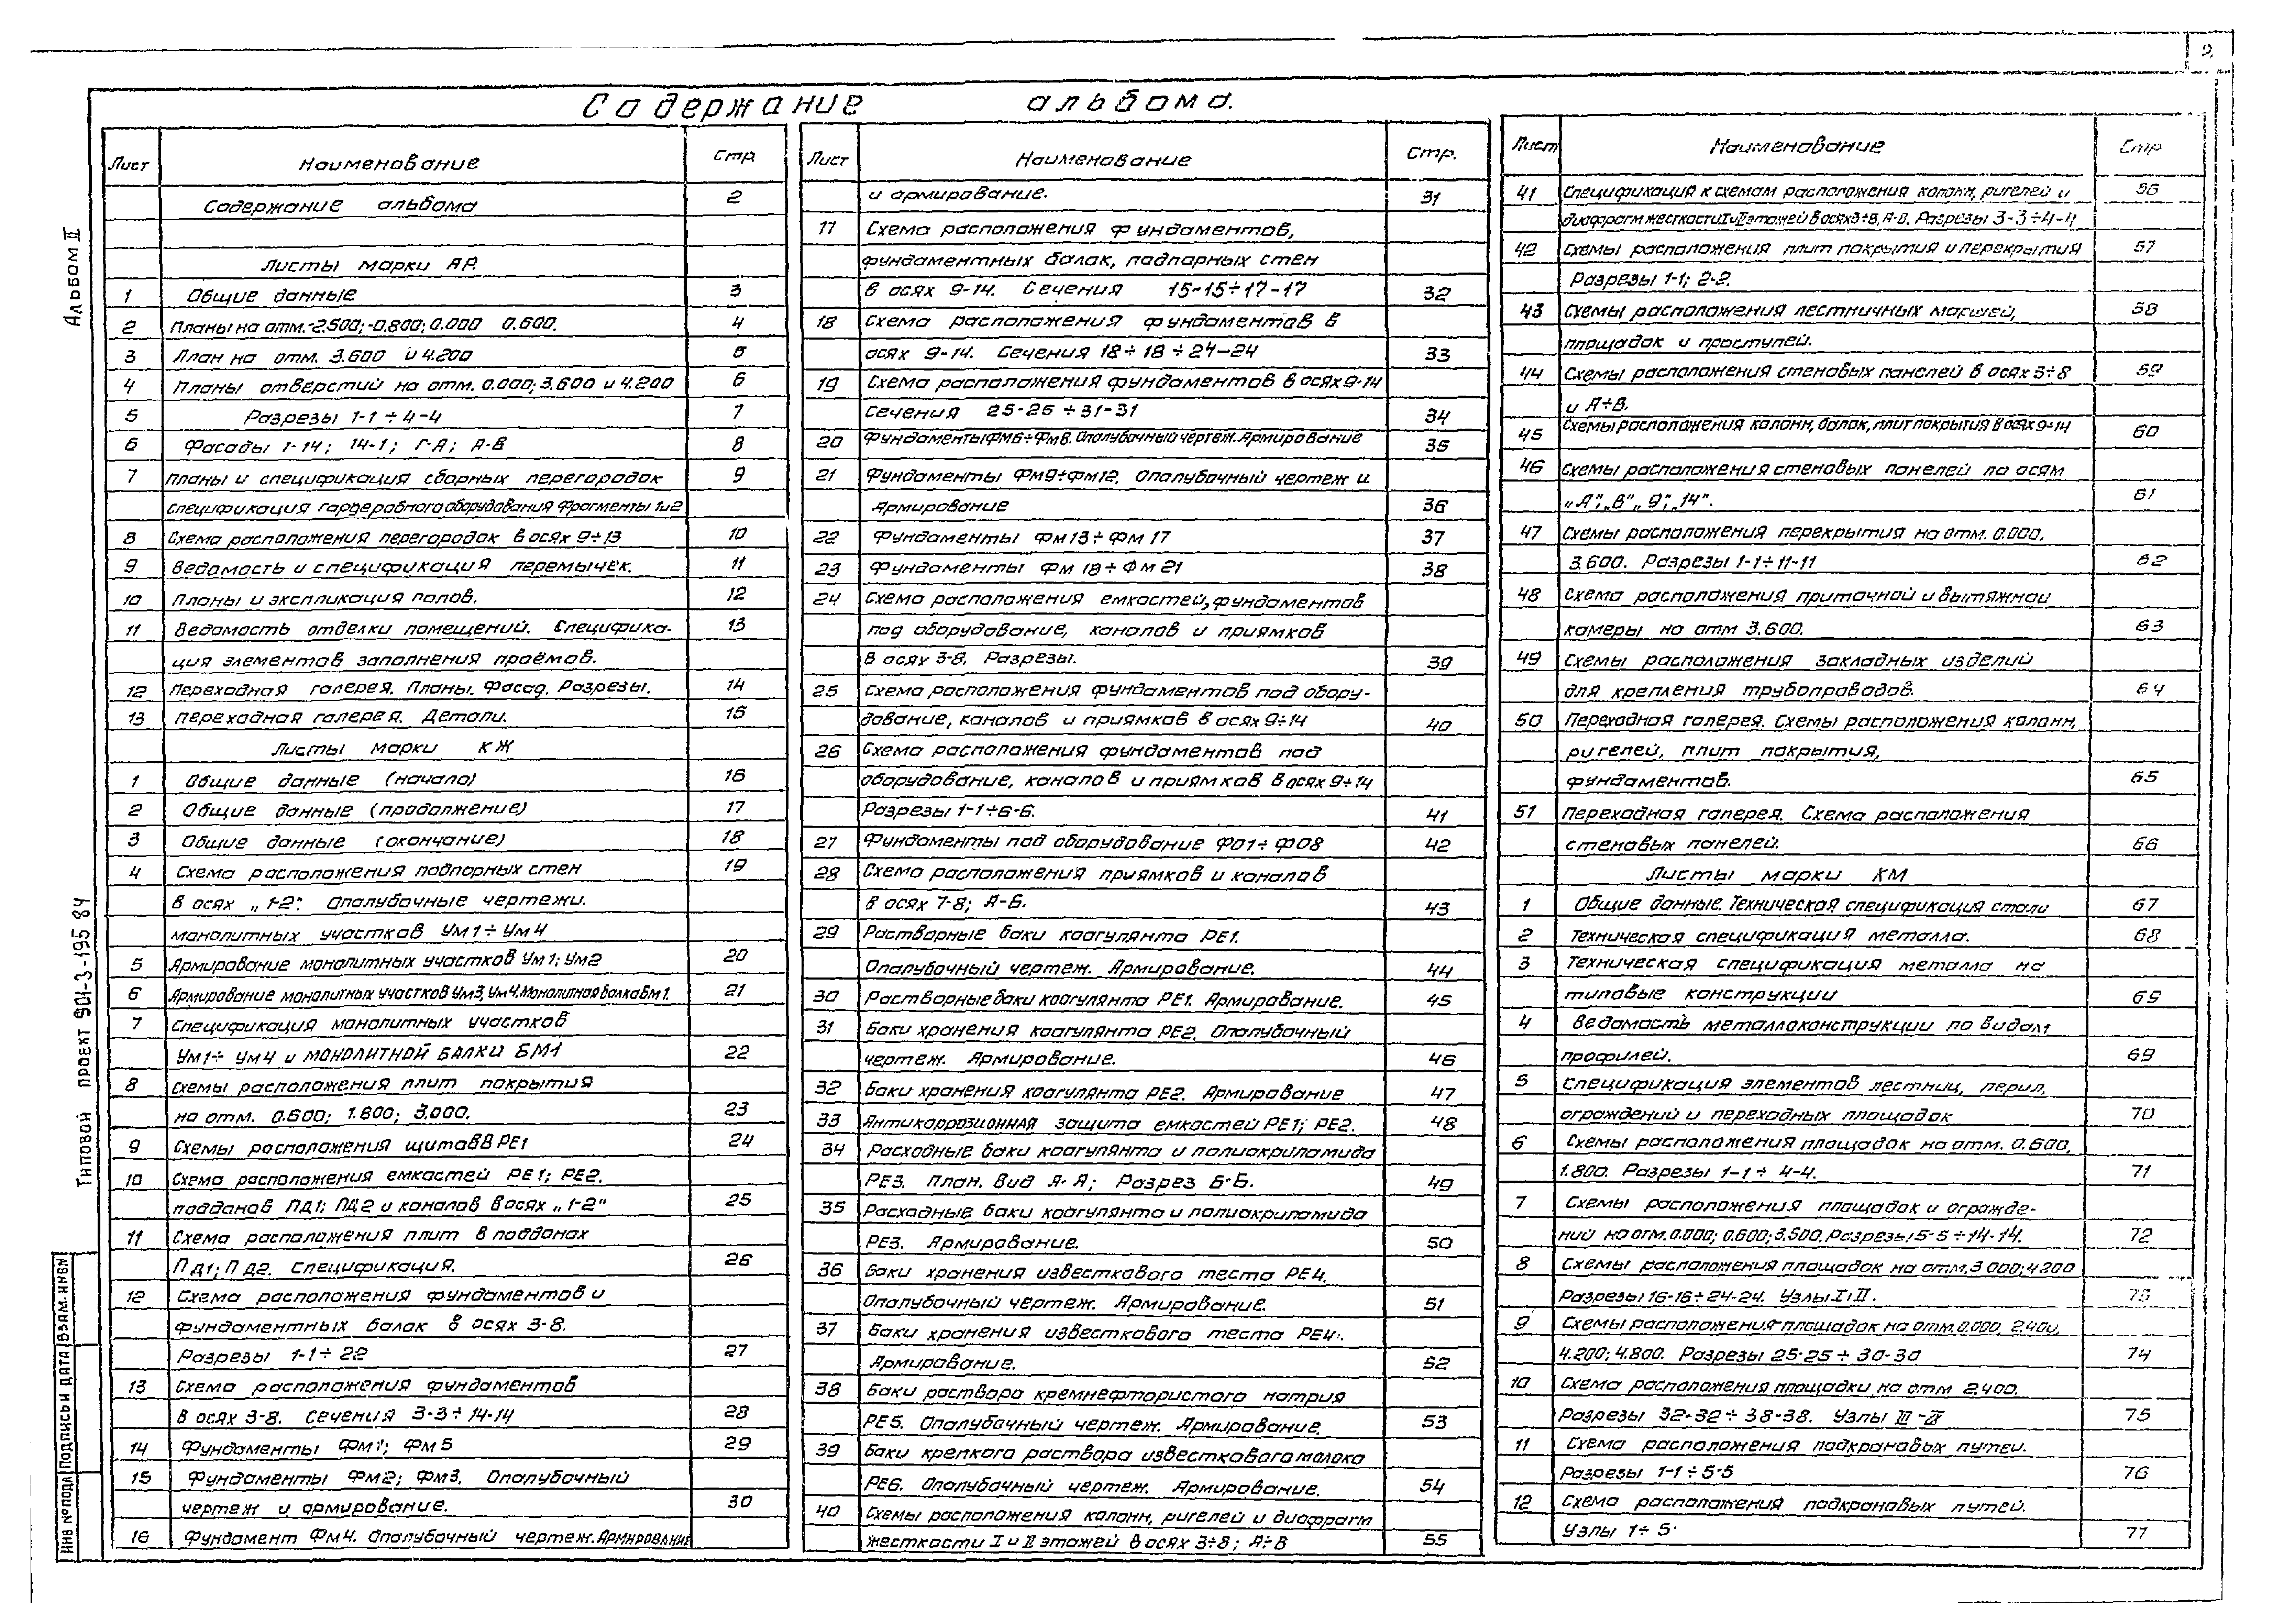 2
Содержание альбома.
Альбом II
Типовой проект 901-3-195 84
Инв № подл Подпись и дата Взам. инв №
Лист Наименование Стр
Содержание альбома 2
Листы марки АР.
1 Общие данные 3
2 Планы на отм.-2.500; -0.800; 0.000 0.600. 4
3 План на отм. 3.600 и 4.200 5
4 Планы отверстий на отм. 0.000; 3.600 и 4.200 6
5 Разрезы 1-1 ÷ 4-4 7
6 Фасады 1-14; 14-1; Г-А; А-В 8
7 Планы и спецификация сборных перегородок 9
Спецификация гардеробного оборудования Фрагменты 1и2
8 Схема расположения перегородок в осях 9÷13 10
9 Ведомость и спецификация перемычек. 11
10 Планы и экспликация полов. 12
11 Ведомость отделки помещений. Специфика- 13
ция элементов заполнения проёмов.
12 Переходная галерея. Планы. Фасад. Разрезы. 14
13 Переходная галерея. Детали. 15
Листы марки КЖ
1 Общие данные (начало) 16
2 Общие данные (продолжение) 17
3 Общие данные (окончание) 18
4 Схема расположения подпорных стен 19
в осях „1-2". Опалубочные чертежи.
монолитных участков Ум1÷Ум4
5 Армирование монолитных участков Ум1; Ум2 20
6 Армирование монолитных участков Ум3, Ум4. Монолитная балка Бм1. 21
7 Спецификация монолитных участков
Ум1÷ Ум4 и монолитной балки БМ1 22
8 Схемы расположения плит покрытия
на отм. 0.600; 1.800; 3.000. 23
9 Схемы расположения щитов В РЕ1 24
10 Схема расположения емкостей РЕ1; РЕ2.
поддонов ПД1; ПД2 и каналов в осях „1-2" 25
11 Схема расположения плит в поддонах
ПД1; ПД2. Спецификация. 26
12 Схема расположения фундаментов и
фундаментных балок в осях 3-8.
Разрезы 1-1÷22 27
13 Схема расположения фундаментов
в осях 3-8. Сечения 3-3÷14-14 28
14 Фундаменты Фм1; Фм5 29
15 Фундаменты Фм2; Фм3. Опалубочный
чертеж и армирование. 30
16 Фундамент Фм4. Опалубочный чертеж. Армирование
Лист Наименование Стр.
и армирование. 31
17 Схема расположения фундаментов,
фундаментных балок, подпорных стен
в осях 9-14. Сечения 15-15÷17-17 32
18 Схема расположения фундаментов в
осях 9-14. Сечения 18÷18÷24-24 33
19 Схема расположения фундаментов в осях 9-14
Сечения 25-26÷31-31 34
20 Фундаменты ФМ6÷ФМ8. Опалубочный чертеж. Армирование 35
21 Фундаменты Фм9÷Фм12. Опалубочный чертеж и
Армирование 36
22 Фундаменты Фм13÷Фм17 37
23 Фундаменты Фм 18÷Фм21 38
24 Схема расположения емкостей, фундаментов
под оборудование, каналов и приямков
в осях 3-8. Разрезы. 39
25 Схема расположения фундаментов под обору-
дование, каналов и приямков в осях 9÷14 40
26 Схема расположения фундаментов под
оборудование, каналов и приямков в осях 9÷14
Разрезы 1-1÷6-6. 41
27 Фундаменты под оборудование ФО1÷ФО8 42
28 Схема расположения приямков и каналов
в осях 7-8; А-Б. 43
29 Растворные баки коагулянта РЕ1.
Опалубочный чертеж. Армирование. 44
30 Растворные баки коагулянта РЕ1. Армирование. 45
31 Баки хранения коагулянта РЕ2. Опалубочный
чертеж. Армирование. 46
32 Баки хранения коагулянта РЕ2. Армирование 47
33 Антикоррозионная защита емкостей РЕ1; РЕ2. 48
34 Расходные баки коагулянта и полиакриламида
РЕ3. План. Вид А-А; Разрез Б-Б. 49
35 Расходные баки коагулянта и полиакриламида
РЕ3. Армирование. 50
36 Баки хранения известкового теста РЕ4.
Опалубочный чертеж. Армирование. 51
37 Баки хранения известкового теста РЕ4.
Армирование. 52
38 Баки раствора кремнефтористого натрия
РЕ5. Опалубочный чертеж. Армирование. 53
39 Баки крепкого раствора известкового молока
РЕ6. Опалубочный чертеж. Армирование. 54
40 Схемы расположения колонн, ригелей и диафрагм
жесткости I и II этажей в осях 3÷8; А÷В 55
Лист Наименование Стр
41 Спецификация к схемам расположения колонн, ригелей и 56
диафрагм жесткости I и II этажей в осях 3÷8, А-В. Разрезы 3-3÷4-4
42 Схемы расположения плит покрытия и перекрытия 57
Разрезы 1-1; 2-2.
43 Схемы расположения лестничных маршей, 58
площадок и проступей.
44 Схемы расположения стеновых панелей в осях 3÷8 59
и А÷В.
45 Схемы расположения колонн, балок, плит покрытия в осях 9÷14 60
46 Схемы расположения стеновых панелей по осям
„А", „В" „9", „14". 61
47 Схемы расположения перекрытия на отм. 0.000,
3.600. Разрезы 1-1÷11-11 62
48 Схема расположения приточной и вытяжной
камеры на отм 3.600. 63
49 Схемы расположения закладных изделий
для крепления трубопроводов. 64
50 Переходная галерея. Схемы расположения колонн,
ригелей, плит покрытия,
фундаментов. 65
51 Переходная галерея. Схема расположения
стеновых панелей. 66
Листы марки КМ
1 Общие данные. Техническая спецификация стали 67
2 Техническая спецификация металла. 68
3 Техническая спецификация металла на
типовые конструкции 69
4 Ведомость металлоконструкции по видам
профилей. 69
5 Спецификация элементов лестниц, перил,
ограждений и переходных площадок 70
6 Схемы расположения площадок на отм. 0.600,
1.800. Разрезы 1-1÷ 4-4. 71
7 Схемы расположения площадок и огражде-
ний на отм. 0.000; 0.600; 3.500. Разрезы 5-5÷14-14. 72
8 Схемы расположения площадок на отм. 3 000; 4200
Разрезы 16-16÷24-24. Узлы I; II. 73
9 Схемы расположения площадок на отм. 0.000, 2.400,
4.200; 4.800. Разрезы 25-25÷30-30 74
10 Схема расположения площадки на отм 2.400.
Разрезы 32-32÷38-38. Узлы III - 75
11 Схема расположения подкрановых путей.
Разрезы 1-1÷5-5 76
12 Схема расположения подкрановых путей.
Узлы 1÷5. 77